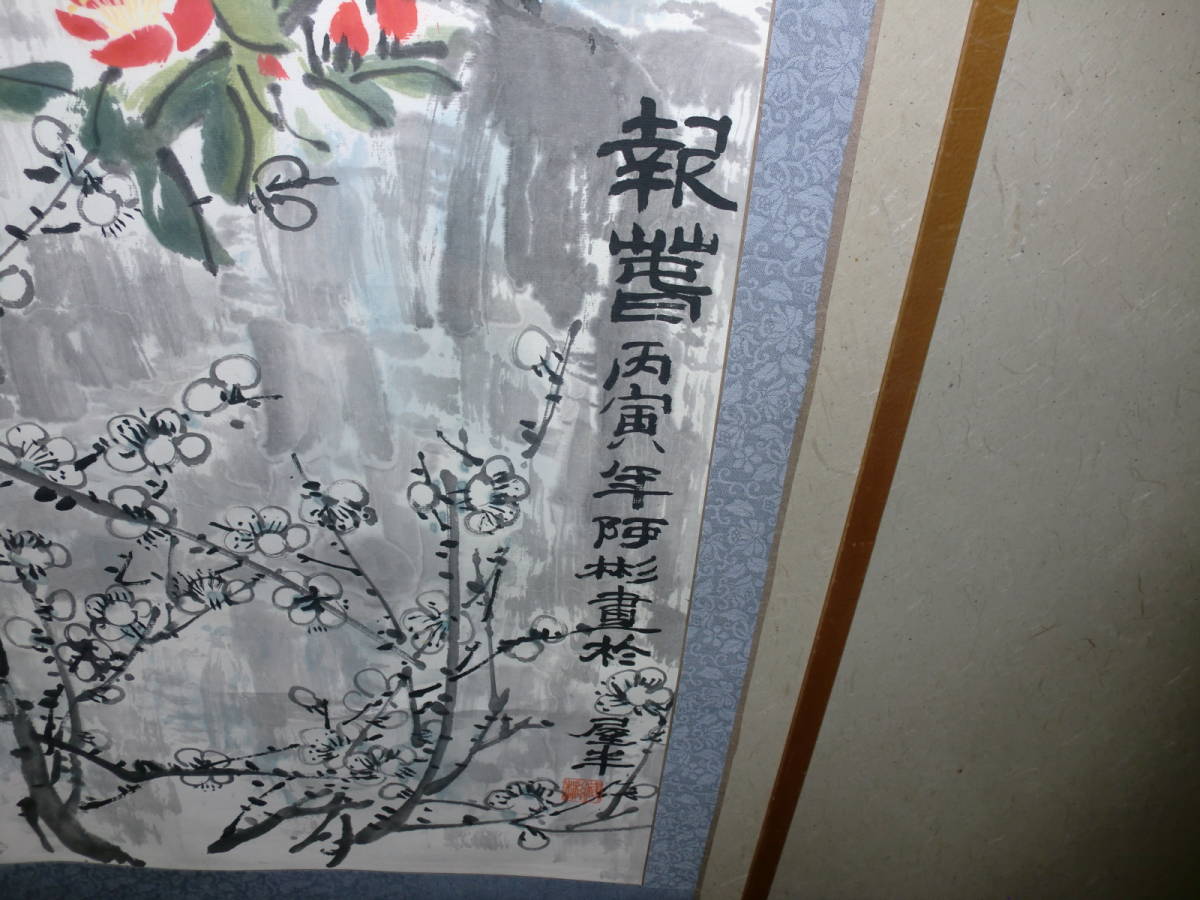 報萅丙寅年阿彬畫於
屋半